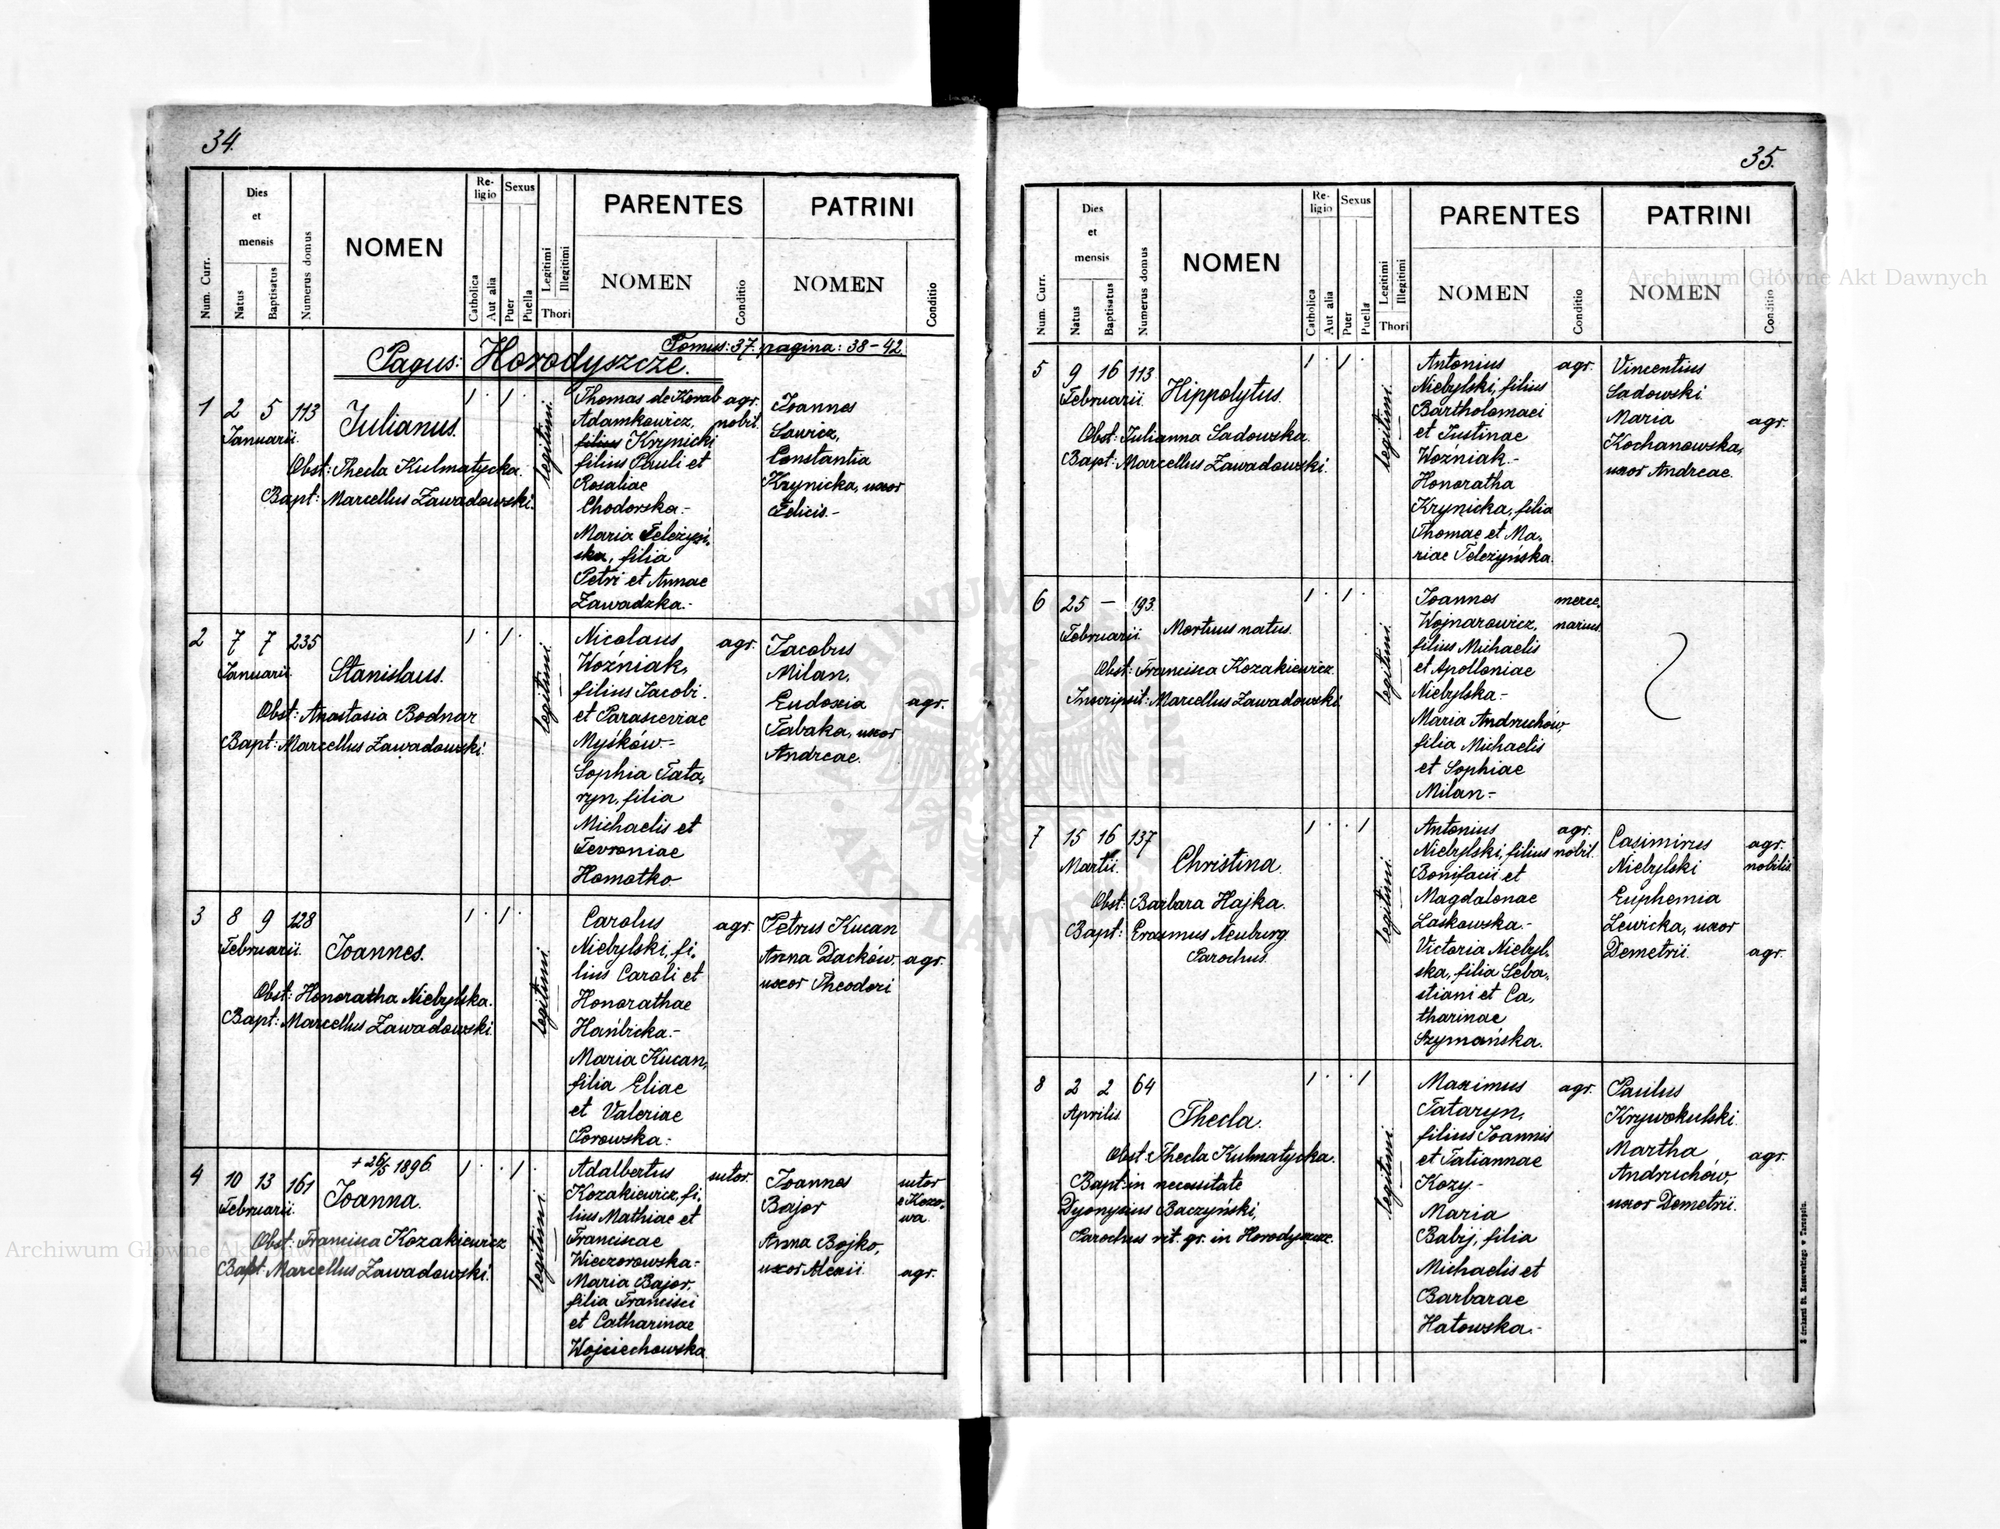 34.
Num. Curr.
Dies et mensis
Natus
Baptisatus
Numerus domus
NOMEN
Religio
Catholica
Aut alia
Sexus
Puer
Puella
Legitimi
Illegitimi
Thori
PARENTES
NOMEN
Conditio
PATRINI
NOMEN
Conditio
Tomus: 37. pagina: 38-42.
Pagus: Horodyszcze.
1 2 5 113
Januarii.
Julianus.
Obst: Thecla Kulmatycka.
Bapt: Marcellus Zawadowski.
1 . 1 .
legitimi.
Thomas de Korab agr.
Adamkowicz, nobil.
filius Krynicki
filius Pauli et
Rosaliae
Chodorska.-
Maria Teleżyń-
ska, filia
Petri et Annae
Zawadzka.-
Joannes
Sawicz,
Constantia
Krynicka, uxor
Felicis.-
2 7 7 235
Januarii.
Stanislaus.
Obst: Anastasia Bodnar
Bapt: Marcellus Zawadowski.
1 . 1 .
legitimi.
Nicolaus agr.
Woźniak,
filius Jacobi
et Parasceviae
Myśków.-
Sophia Tata-
ryn, filia
Michaelis et
Fevroniae
Homotko
Jacobus
Milan,
Eudoxia agr.
Tabaka, uxor
Andreae.
3 8 9 128
Februarii.
Joannes.
Obst: Honoratha Niebylska.
Bapt: Marcellus Zawadowski.
1 . 1 .
legitimi.
Carolus agr.
Niebylski, fi-
lius Caroli et
Honorathae
Hańbicka.-
Maria Kucan,
filia Eliae
et Valeriae
Porowska.-
Petrus Kucan
Anna Daćków, agr.
uxor Theodori
4 10 13 161
Februarii.
+ 26/5 1896.
Joanna.
Obst: Francisca Kozakiewicz
Bapt: Marcellus Zawadowski.
1 . . 1 .
legitimi.
Adalbertus sutor.
Kozakiewicz, fi-
lius Mathiae et
Franciscae
Wieczorowska.-
Maria Bajor,
filia Francisci
et Catharinae
Wojciechowska.
Joannes sutor
Bajor e Kozo-
wa
Anna Bojko,
uxor Alexii. agr.
35.
Num. Curr.
Dies et mensis
Natus
Baptisatus
Numerus domus
NOMEN
Religio
Catholica
Aut alia
Sexus
Puer
Puella
Legitimi
Illegitimi
Thori
PARENTES
NOMEN
Conditio
PATRINI
NOMEN
Conditio
5 9 16 113
Februarii.
Hippolytus.
Obst: Julianna Sadowska.
Bapt: Marcellus Zawadowski.
1 . 1 .
legitimi.
Antonius agr.
Niebylski, filius
Bartholomaei
et Justinae
Woźniak.-
Honoratha
Krynicka, filia
Thomae et Ma-
riae Teleżyńska.
Vincentius
Sadowski.
Maria agr.
Kochanowska,
uxor Andreae.
6 25 - 193.
Februarii.
Mortuus natus.
Obst: Francisca Kozakiewicz.
Inscripsit: Marcellus Zawadowski.
1 . 1 .
legitimi.
Joannes merce-
Wojnarowicz, narius.
filius Michaelis
et Apolloniae
Niebylska.-
Maria Andruchów,
filia Michaelis
et Sophiae
Milan.-
7 15 16 137
Martii.
Christina.
Obst: Barbara Hajka.
Bapt: Erasmus Neuburg
Parochus.
1 . . 1
legitimi.
Antonius agr.
Niebylski, filius nobil.
Bonifacii et
Magdalenae
Laskowska.-
Victoria Niebyl-
ska, filia Seba-
stiani et Ca-
tharinae
Szymańska.
Casimirus agr.
Niebylski nobilis
Euphemia
Lewicka, uxor
Demetrii. agr.
8 2 2 64
Aprilis.
Thecla.
Obst: Thecla Kulmatycka.
Bapt: in necessitate
Dyonysius Baczyński,
Parochus rit. gr. in Horodyszcze.
1 . . 1
legitimi.
Maximus agr.
Tataryn,
filius Joannis
et Tatiannae
Kozy.-
Maria
Babij, filia
Michaelis et
Barbarae
Hatowska.-
Paulus
Krywokulski.
Martha agr.
Andruchów,
uxor Demetrii.
Z drukarni St. Kossowskiego w Tarnopolu.
Archiwum Główne Akt Dawnych
Archiwum Główne Akt Dawnych
ARCHIWUM GŁÓWNE AKT DAWNYCH